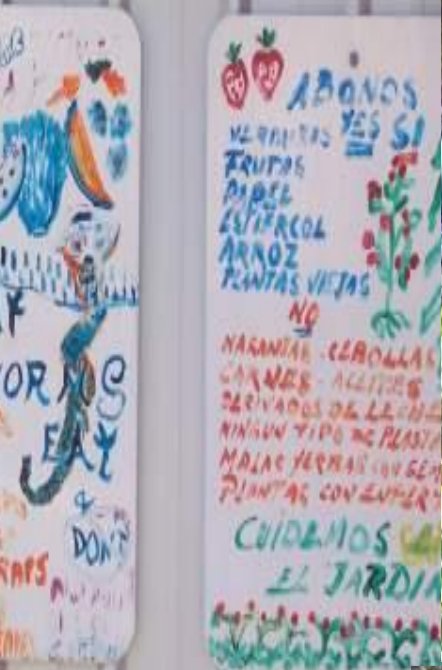 F
OR  S
EAT
&
DON'T
RAPS
ABONOS
YES SI
VERDURAS
FRUTAS
PAPEL
ESTIERCOL
ARROZ
PLANTAS VIEJAS
NO
NARANJAS - CEBOLLAS
CARNES - ACEITES
DERIVADOS DE LECHE
NINGUN TIPO DE PLASTI
MALAS YERBAS CON SEM
PLANTAS CON ENFER
CUIDEMOS
EL JARDIN